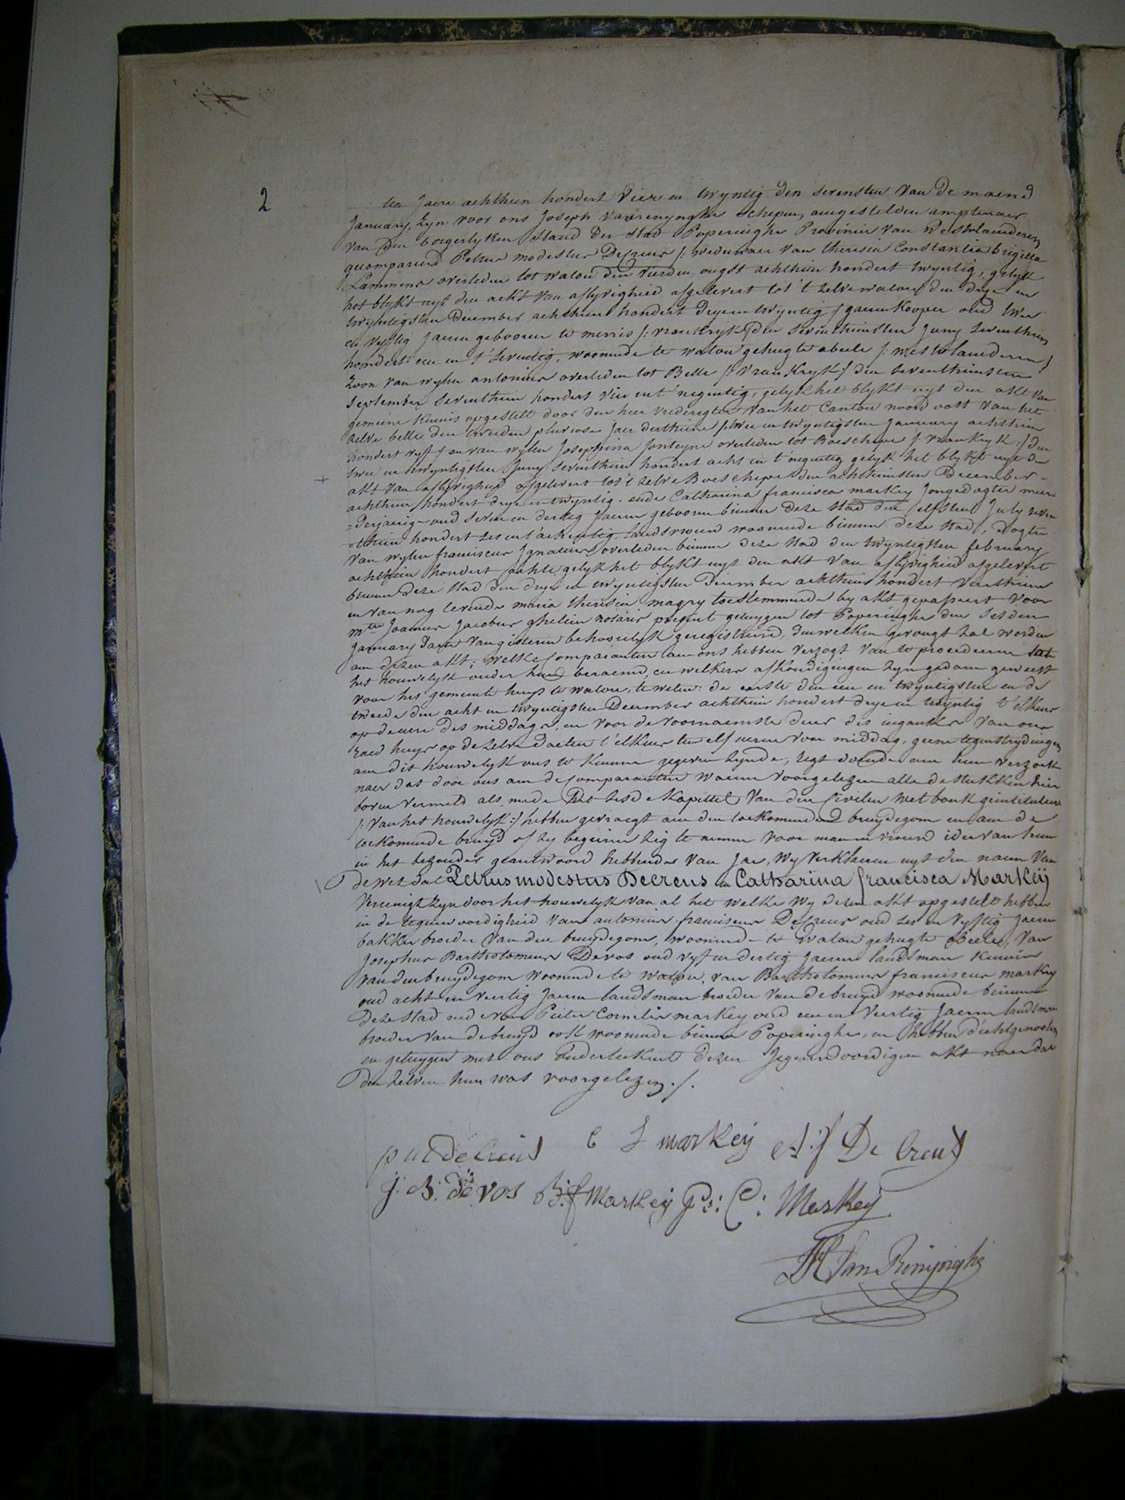 2
den Jaere achthien hondert Vier en twyntig den sevensten Van De maend
January, Zyn voor ons Joseph Vanrenynghe Schepen, aengestelden amptenaer
van den borgerlyken Stand der Stad Poperinghe Provincie van Westvlaenderen
gecompareerd Petrus modestus Decreus /: weduwaer van theresia Constantia brigitta
Lammens overleden tot watou den vierden ougst achthien hondert twyntig, gelyk
het blykt uyt den ackt van aflyvigheid afgelevert tot 't zelve watou den drye en
twyntigsten December achthien hondert drye en twyntig / gaerenkooper oud twee
en vyftig Jaeren gebooren te merris /: vrankryk :/ den Seventhiensten Juny seventhien
hondert een en t' seventig, woonende te watou gehugte abeele /: westvlaenderen /
Zoon van wylen antonius overleden tot Belle /: Vrankryk / den seventhiensten
September seventhien hondert vier en t' negentig, gelyk het blykt uyt den akt van
gemeene kennis opgestelt door den heer vrederegter van het Canton noord oost van het
zelve belle den tweeden pluviose jaer derthiene / twee en twyntigsten January achthien
hondert vyf / en van wylen Josephina fonteyne overleden tot Boeschepe /: vrankryk :/ den
twee en twyntigsten Juny seventhien hondert acht en t' negentig gelyk het blykt uyt de
akt van aflyvigheyd afgelevert tot 't zelve Boeschepe den achthiensten December
achthien hondert drye en twyntig. ende Catharina francisca markey Jongedogter meer-
-derjarig oud seven en dertig Jaeren gebooren binnen deze stad den elfsten July seven-
-thien hondert zes en t' achentig landsvrouw woonende binnen deze stad, dogter
van wylen franciscus Ignatius overleden binnen deze stad den twyntigsten february
achthien hondert achte gelyk het blykt uyt den akt van aflyvigheid afgelevert
binnen deze stad den drye en twyntigsten December achthien hondert vierthien
en van nog levende maria theresia magry toestemmende by akt gepasseert voor
mtre Joannes Jacobus ghelein notaris present getuygen tot Poperinghe den sesden
January daer van gisteren behoorelyk geregistreerd, denwelken gevoegt zal worden
aen dezen akt; welke Comparanten aen ons hebben verzogt van te procederen tot
het houwelyk onder hun beraemd, en welkers afkondigingen zyn gedaen geweest
voor het gemeente huys te watou, te weten: de eerste den een en twyntigsten en de
tweede den acht en twyntigsten December achthien hondert drye en twyntig t' elkens
op de ure des middags, en voor de voornaemste deur des ingankes van ons
Raed huys op de zelve daeten t' elkens ten elf ueren voor middag, geene tegenstrydingen
aen dit houwelyk ons te kennen gegeven zynde, regt doende aen hun verzoek
naer dat door ons aen de Comparanten waeren voorgelezen alle de stukken hier
boven vermeld als mede het sesde kapittel van den Civilen wet boek geintituleert
/: van het houwelyk :/ hebben gevraegt aen den toekomenden bruydegom en aen de
toekomende bruyd of zy begeeren zig te nemen voor man en vrouw ider van hun
in het bezonder geantwoord hebbende van Jae, Wy verklaeren uyt den naem van
de wet dat Petrus modestus Decreus en Catharina francisca Markeÿ
Vereenigt zyn door het houwelyk van al het welke wy dezen akt opgestelt hebben
in de tegenwoordigheid van antonius franciscus Decreus oud zes en vyftig Jaeren
bakker broeder van den bruydegom, woonende te Watou gehugte Abeele, van
Josephus Bartholomeus Devos oud vyf en dertig Jaeren landsman kennis
van den bruydegom woonende te watou, van Bartholomeus franciscus markey
oud acht en veertig Jaeren landsman broeder van de bruyd woonende binnen
deze stad ende van Pieter Cornelis markey oud een en veertig Jaeren landsman
broeder van de bruyd ook woonende binnen Poperinghe, en hebben d'echtgenooten
en getuygen met ons onderteekent dezen Jegenwoordigen akt naer dat
den zelven hun was voorgelezen./.
p m decreus C f markeÿ A: f De Creus
J: B: de vos B: f Markeÿ P: C: Markeÿ
JH Van Renynghe